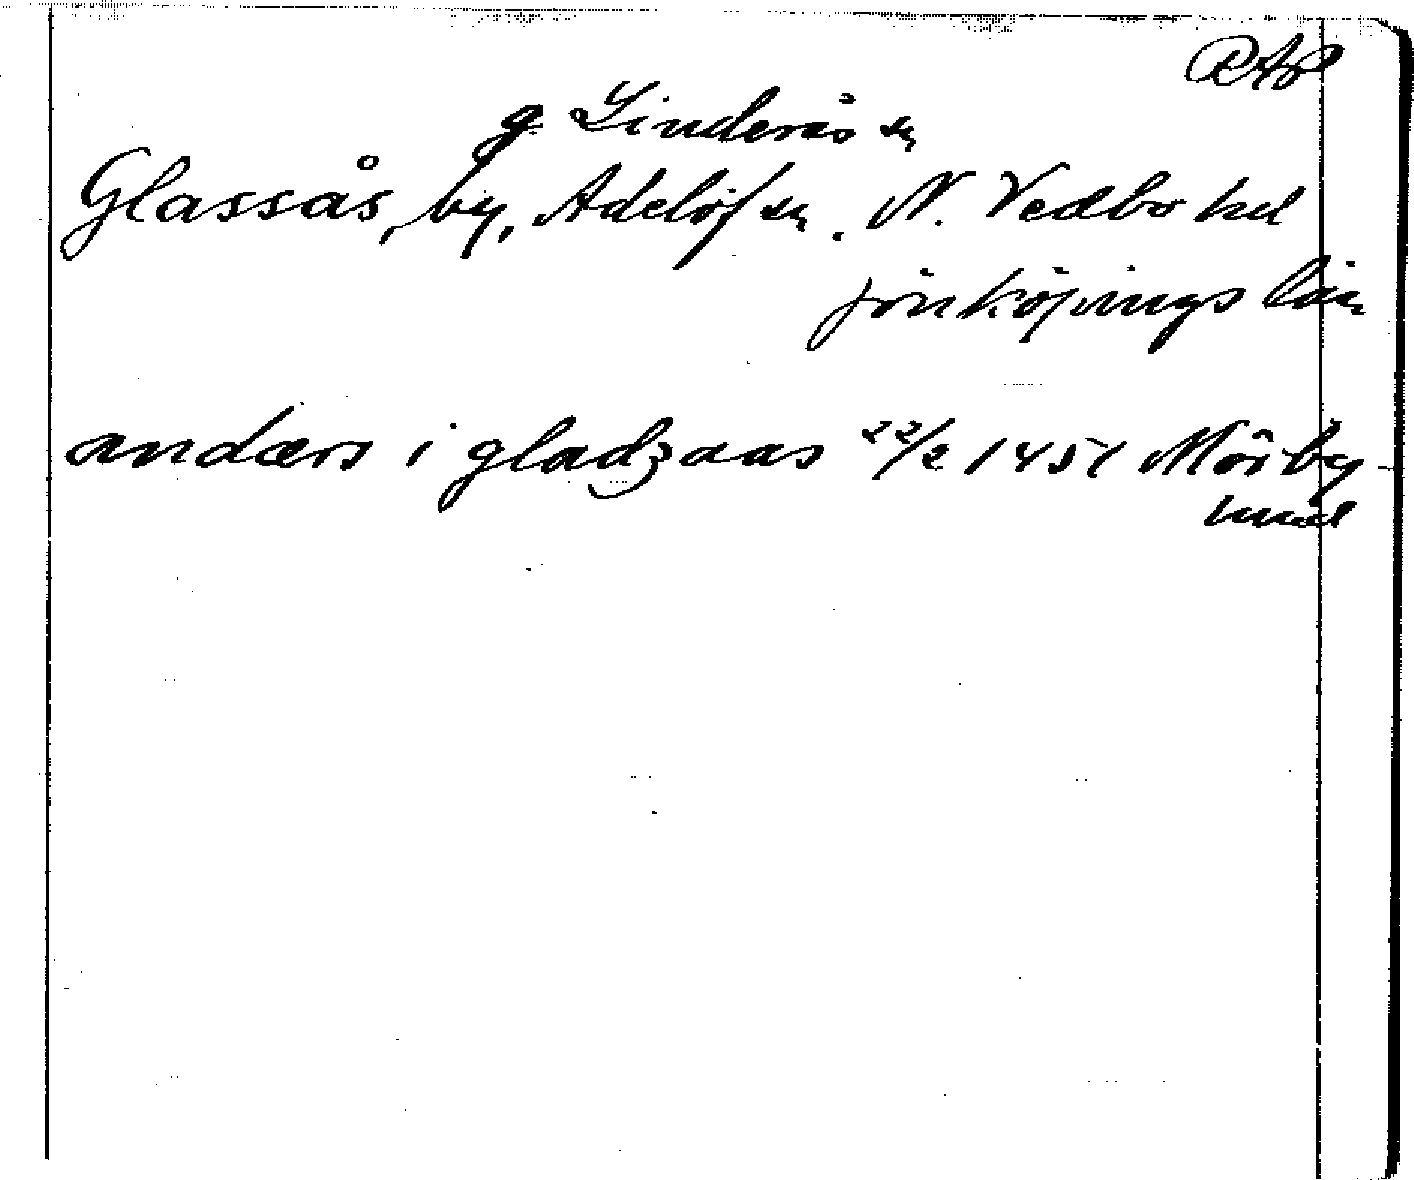 RAp
g Linderås sn
Glassås, by, Adelöf sn. N. Vedbo hd
Jönköpings län
andærs i gladzaas 22/2 1451 Mörby
hund